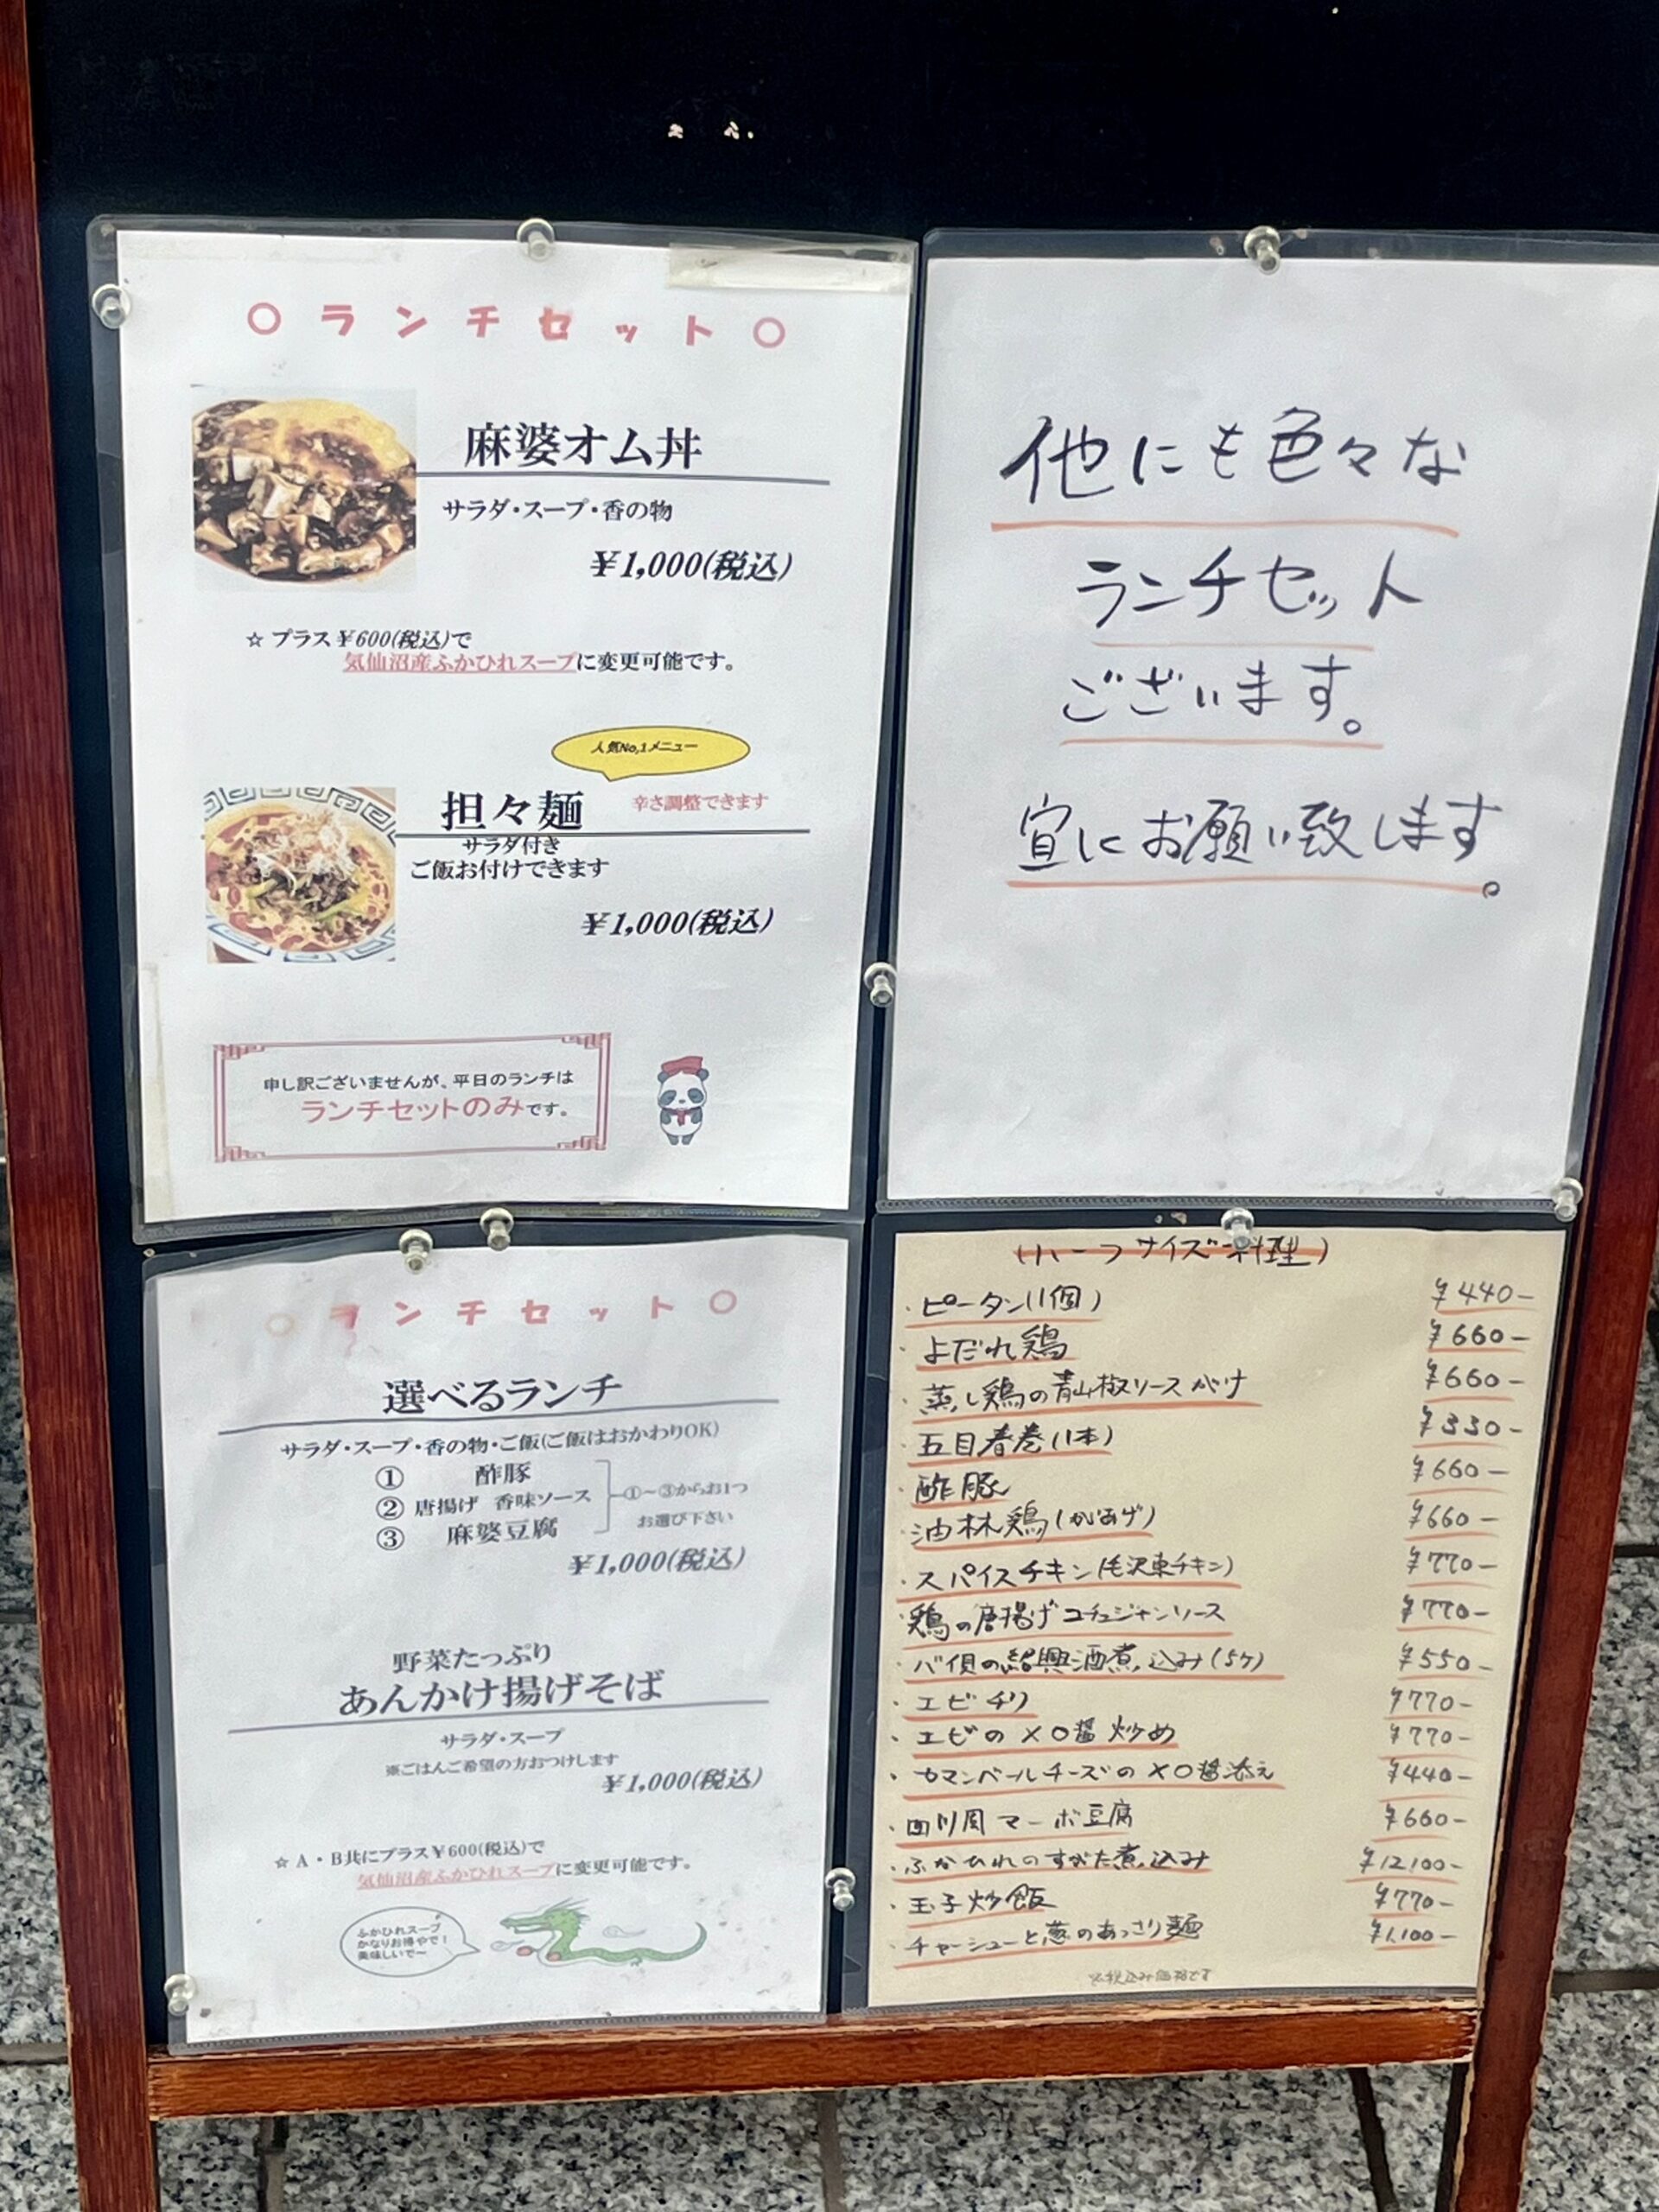 ○ランチセット○
麻婆オム丼
サラダ・スープ・香の物
¥1,000(税込)
☆ プラス¥600(税込)で
気仙沼産ふかひれスープに変更可能です。
人気No,1メニュー
担々麺 辛さ調整できます
サラダ付き
ご飯お付けできます
¥1,000(税込)
申し訳ございませんが、平日のランチは
ランチセットのみです。
他にも色々な
ランチセット
ございます。
宜にお願い致します。
○ランチセット○
選べるランチ
サラダ・スープ・香の物・ご飯(ご飯はおかわりOK)
① 酢豚
② 唐揚げ 香味ソース
③ 麻婆豆腐
①〜③からお1つ
お選び下さい
¥1,000(税込)
野菜たっぷり
あんかけ揚げそば
サラダ・スープ
※ごはんご希望の方おつけします
¥1,000(税込)
☆ A・B共にプラス¥600(税込)で
気仙沼産ふかひれスープに変更可能です。
ふかひれスープ
かなりお得やで!
美味しいで〜
(ハーフサイズ料理)
・ピータン(1個) ¥440-
・よだれ鶏 ¥660-
・蒸し鶏の青山椒ソースがけ ¥660-
・五目春巻(1本) ¥330-
・酢豚 ¥660-
・油林鶏(からあげ) ¥660-
・スパイスチキン(毛沢東チキン) ¥770-
・鶏の唐揚げコチュジャンソース ¥770-
・バイ貝の紹興酒煮込み(5ケ) ¥550-
・エビチリ ¥770-
・エビのXO醤炒め ¥770-
・カマンベールチーズのXO醤添え ¥440-
・四川風マーボ豆腐 ¥660-
・ふかひれのすがた煮込み ¥12,100-
・玉子炒飯 ¥770-
・チャーシューと葱のあっさり麺 ¥1,100-
※税込み価格です